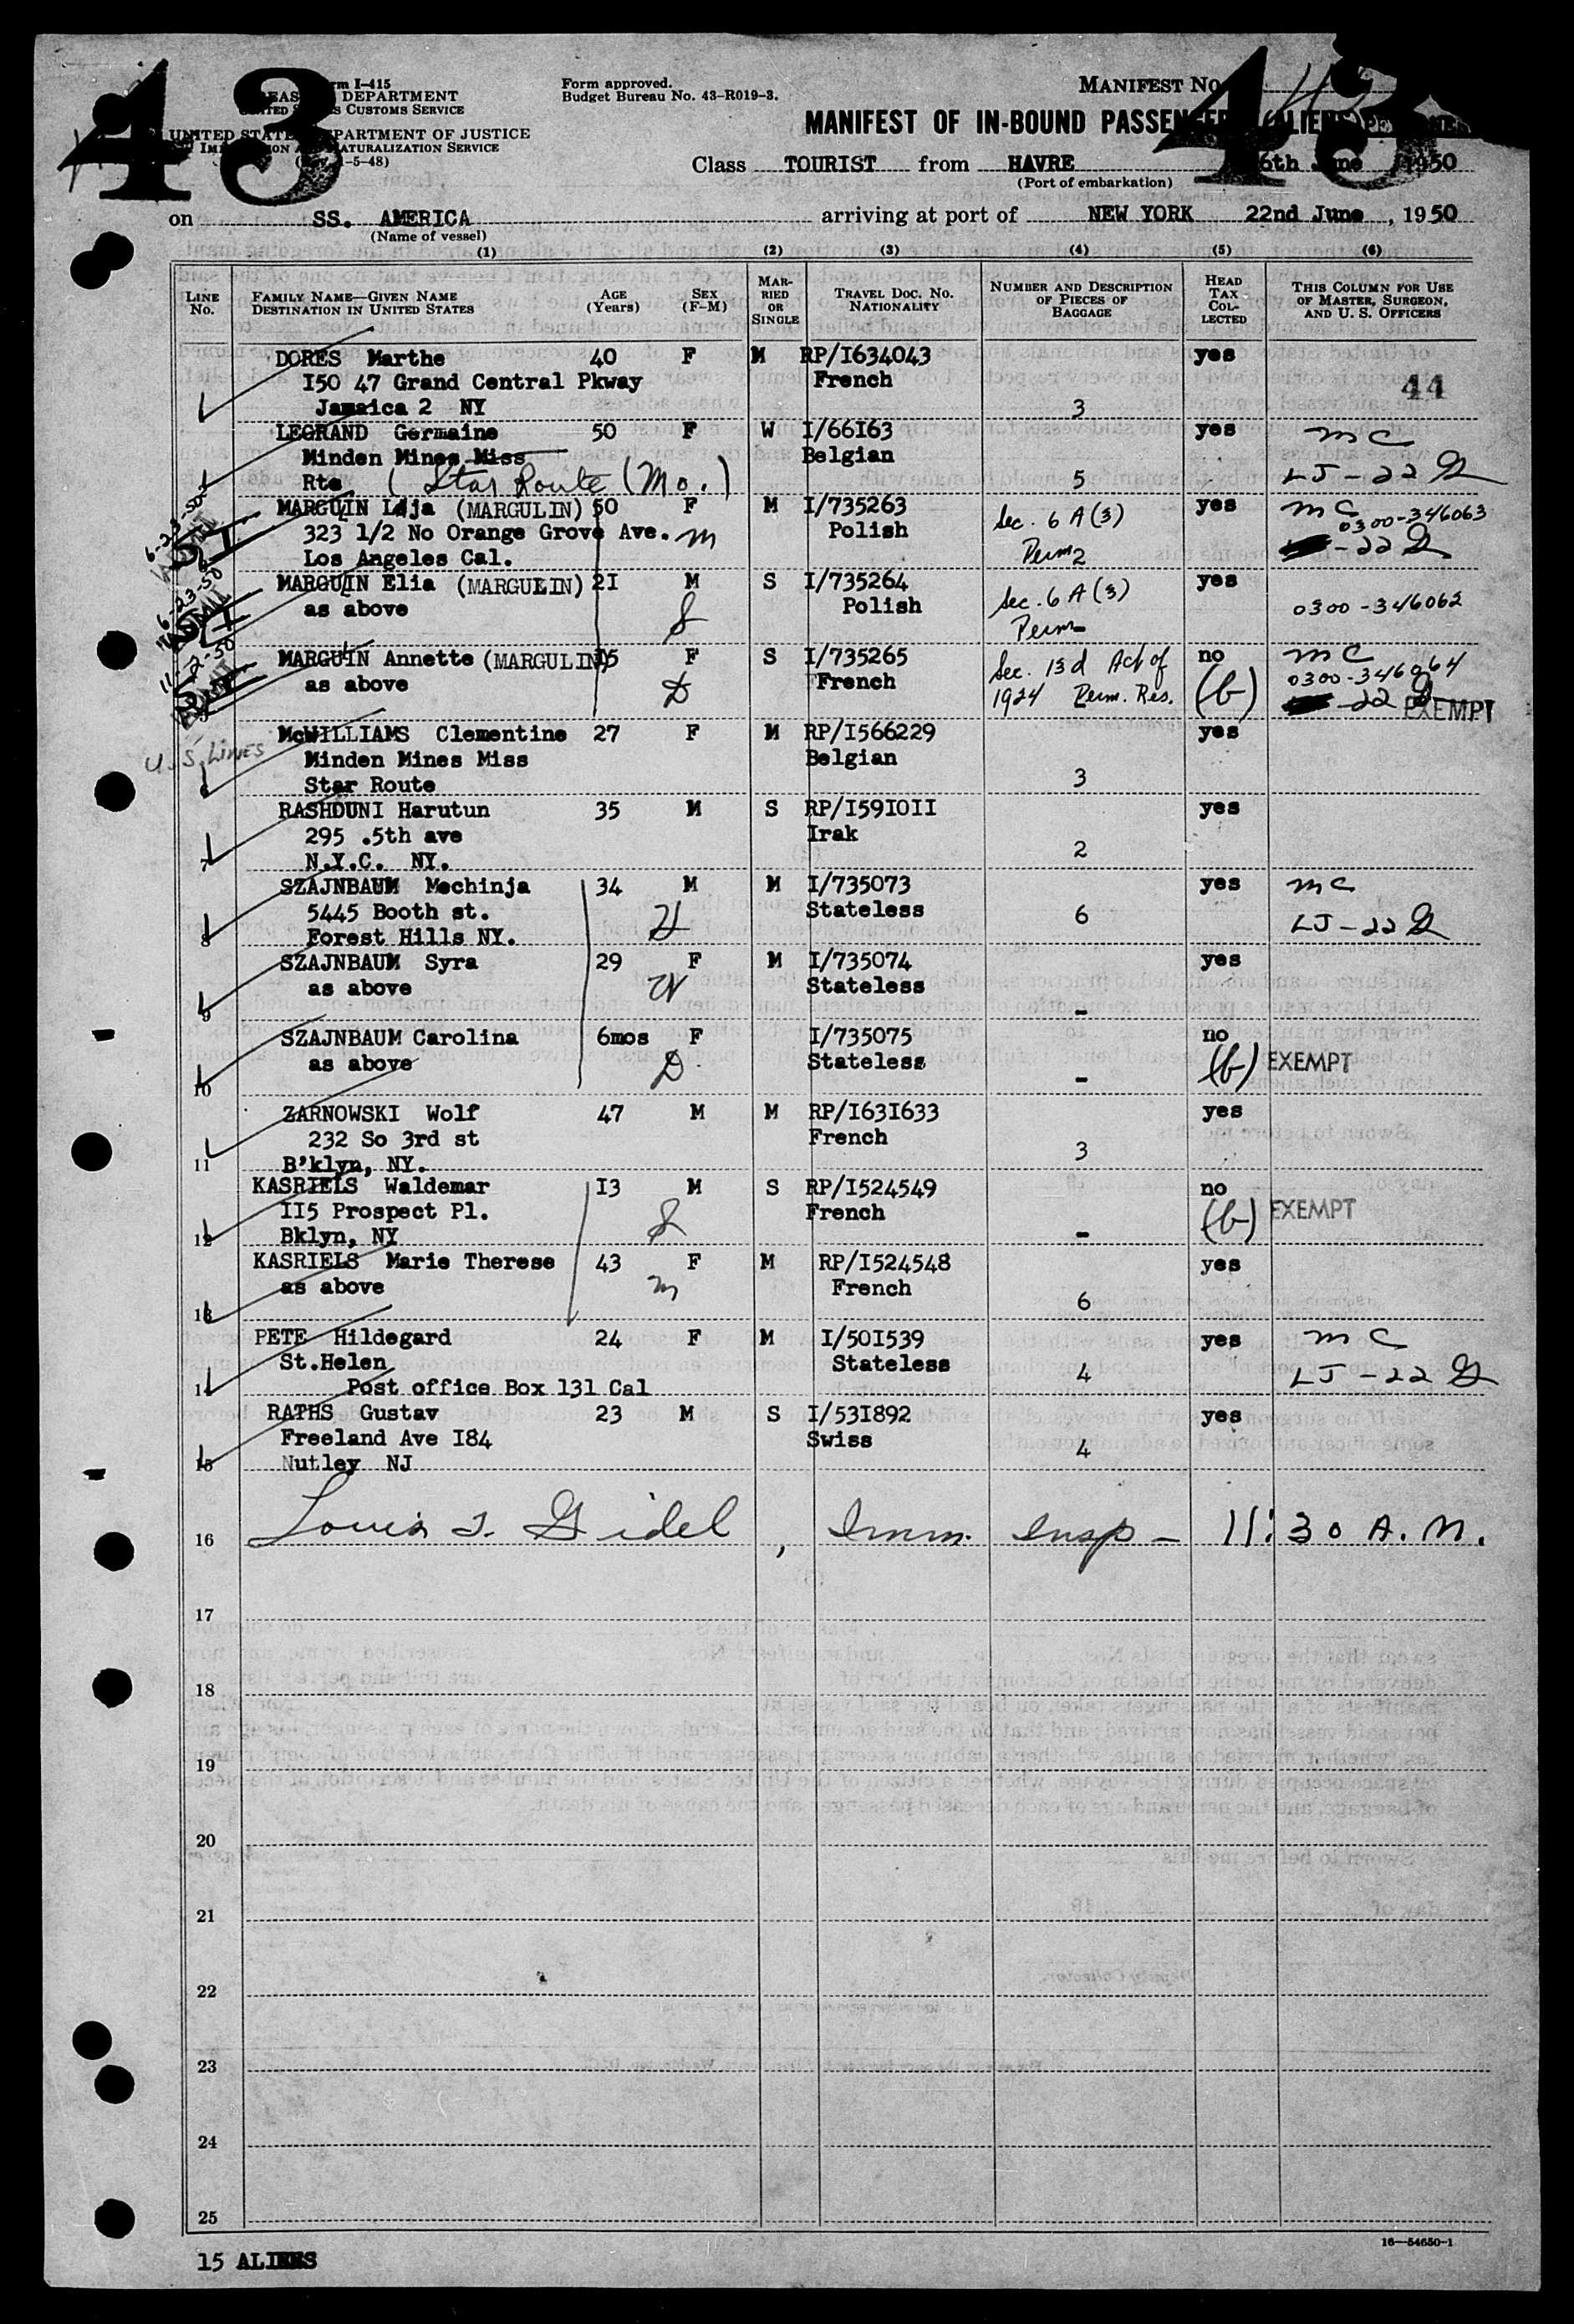 43
43
Form I-415
TREASURY DEPARTMENT
UNITED STATES CUSTOMS SERVICE
UNITED STATES DEPARTMENT OF JUSTICE
IMMIGRATION AND NATURALIZATION SERVICE
Form approved.
Budget Bureau No. 43-R019-3.
MANIFEST No.
MANIFEST OF IN-BOUND PASSENGERS (ALIENS)
Class TOURIST from HAVRE 6th June 1950
(Port of embarkation)
on SS. AMERICA arriving at port of NEW YORK 22nd June, 1950
(Name of vessel)
(1) (2) (3) (4) (5) (6)
LINE No. FAMILY NAME—GIVEN NAME DESTINATION IN UNITED STATES AGE (Years) SEX (F-M) MARRIED OR SINGLE TRAVEL DOC. NO. NATIONALITY NUMBER AND DESCRIPTION OF PIECES OF BAGGAGE HEAD TAX COLLECTED THIS COLUMN FOR USE OF MASTER, SURGEON, AND U. S. OFFICERS
DORES Marthe 40 F M RP/I634043 yes
I50 47 Grand Central Pkway French 44
Jamaica 2 NY 3
LEGRAND Germaine 50 F W I/66I63 yes mc
Minden Mines Miss Belgian
Rte (Star Route (Mo.) 5 LJ-22
6-23-50 MARGUIN Laja (MARGULIN) 50 F M I/735263 Sec. 6 A (3) yes mc 0300-346063
323 1/2 No Orange Grove Ave. m Polish
Los Angeles Cal. Perm 2 -22
6-23-50 MARGUIN Elia (MARGULIN) 2I M S I/735264 Sec. 6 A (3) yes
as above S Polish Perm 0300-346062
11-2-50 MARGUIN Annette (MARGULIN) 15 F S I/735265 Sec. 13d Act of no mc
as above D French 1924 Perm. Res. (b) 0300-346064
-22 EXEMPT
McWILLIAMS Clementine 27 F M RP/I566229 yes
U.S. LINES Minden Mines Miss Belgian
Star Route 3
RASHDUNI Harutun 35 M S RP/I59I0II yes
295 .5th ave Irak
7 N.Y.C. NY. 2
SZAJNBAUM Mechinja 34 M M I/735073 yes mc
5445 Booth st. H Stateless 6
8 Forest Hills NY. LJ-22
SZAJNBAUM Syra 29 F M I/735074 yes
as above W Stateless
9 -
SZAJNBAUM Carolina 6mos F I/735075 no
as above D Stateless (b) EXEMPT
10 -
ZARNOWSKI Wolf 47 M M RP/I63I633 yes
232 So 3rd st French
11 B'klyn, NY. 3
KASRIELS Waldemar I3 M S RP/I524549 no
II5 Prospect Pl. S French (b) EXEMPT
12 Bklyn, NY -
KASRIELS Marie Therese 43 F M RP/I524548 yes
as above m French
13 6
PETE Hildegard 24 F M I/50I539 yes mc
St.Helen Stateless
14 Post office Box 131 Cal 4 LJ-22
RATHS Gustav 23 M S I/53I892 yes
Freeland Ave I84 Swiss
15 Nutley NJ 4
16 Louis J. Gidel, Imm. Insp - 11:30 A.M.
17
18
19
20
21
22
23
24
25
16—54650-1
15 ALIENS